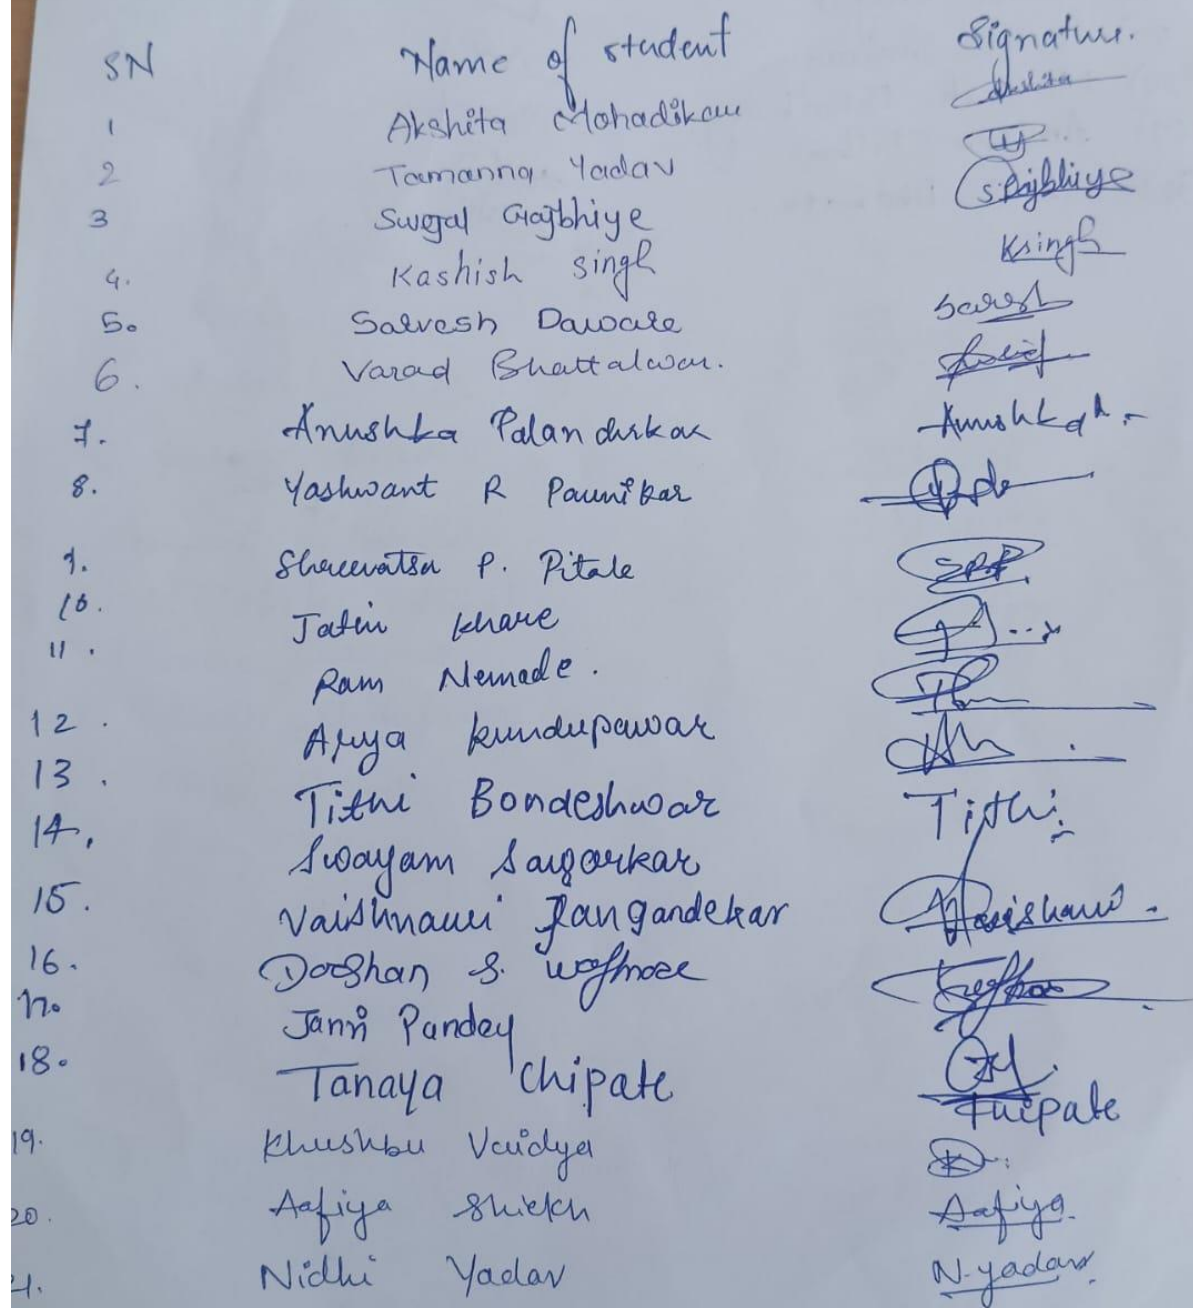 SN Name of student Signature.
1 Akshita Mohadikar Akshita
2 Tamanna Yadav
3 Swejal Gajbhiye S.Gajbhiye
4. Kashish singh Ksingh
5. Sarvesh Daware Sarvesh
6. Varad Bhattalwar.
7. Anushka Palandurkar Anushka
8. Yashwant R Paunikar
9. Shreevatsa P. Pitale S.P.P.
10. Jatin Khare
11. Ram Nemade.
12. Arya kundupawar
13. Tithi Bondeshwar Tithi
14. Swayam Saygarkar
15. Vaishnavi Rangandekar Vaishnavi.
16. Darshan S. waghmare
17. Janvi Pandey
18. Tanaya Chipate Tchipate
19. Khushbu Vaidya
20. Aafiya Shiekh Aafiya.
21. Nidhi Yadav N.yadav.